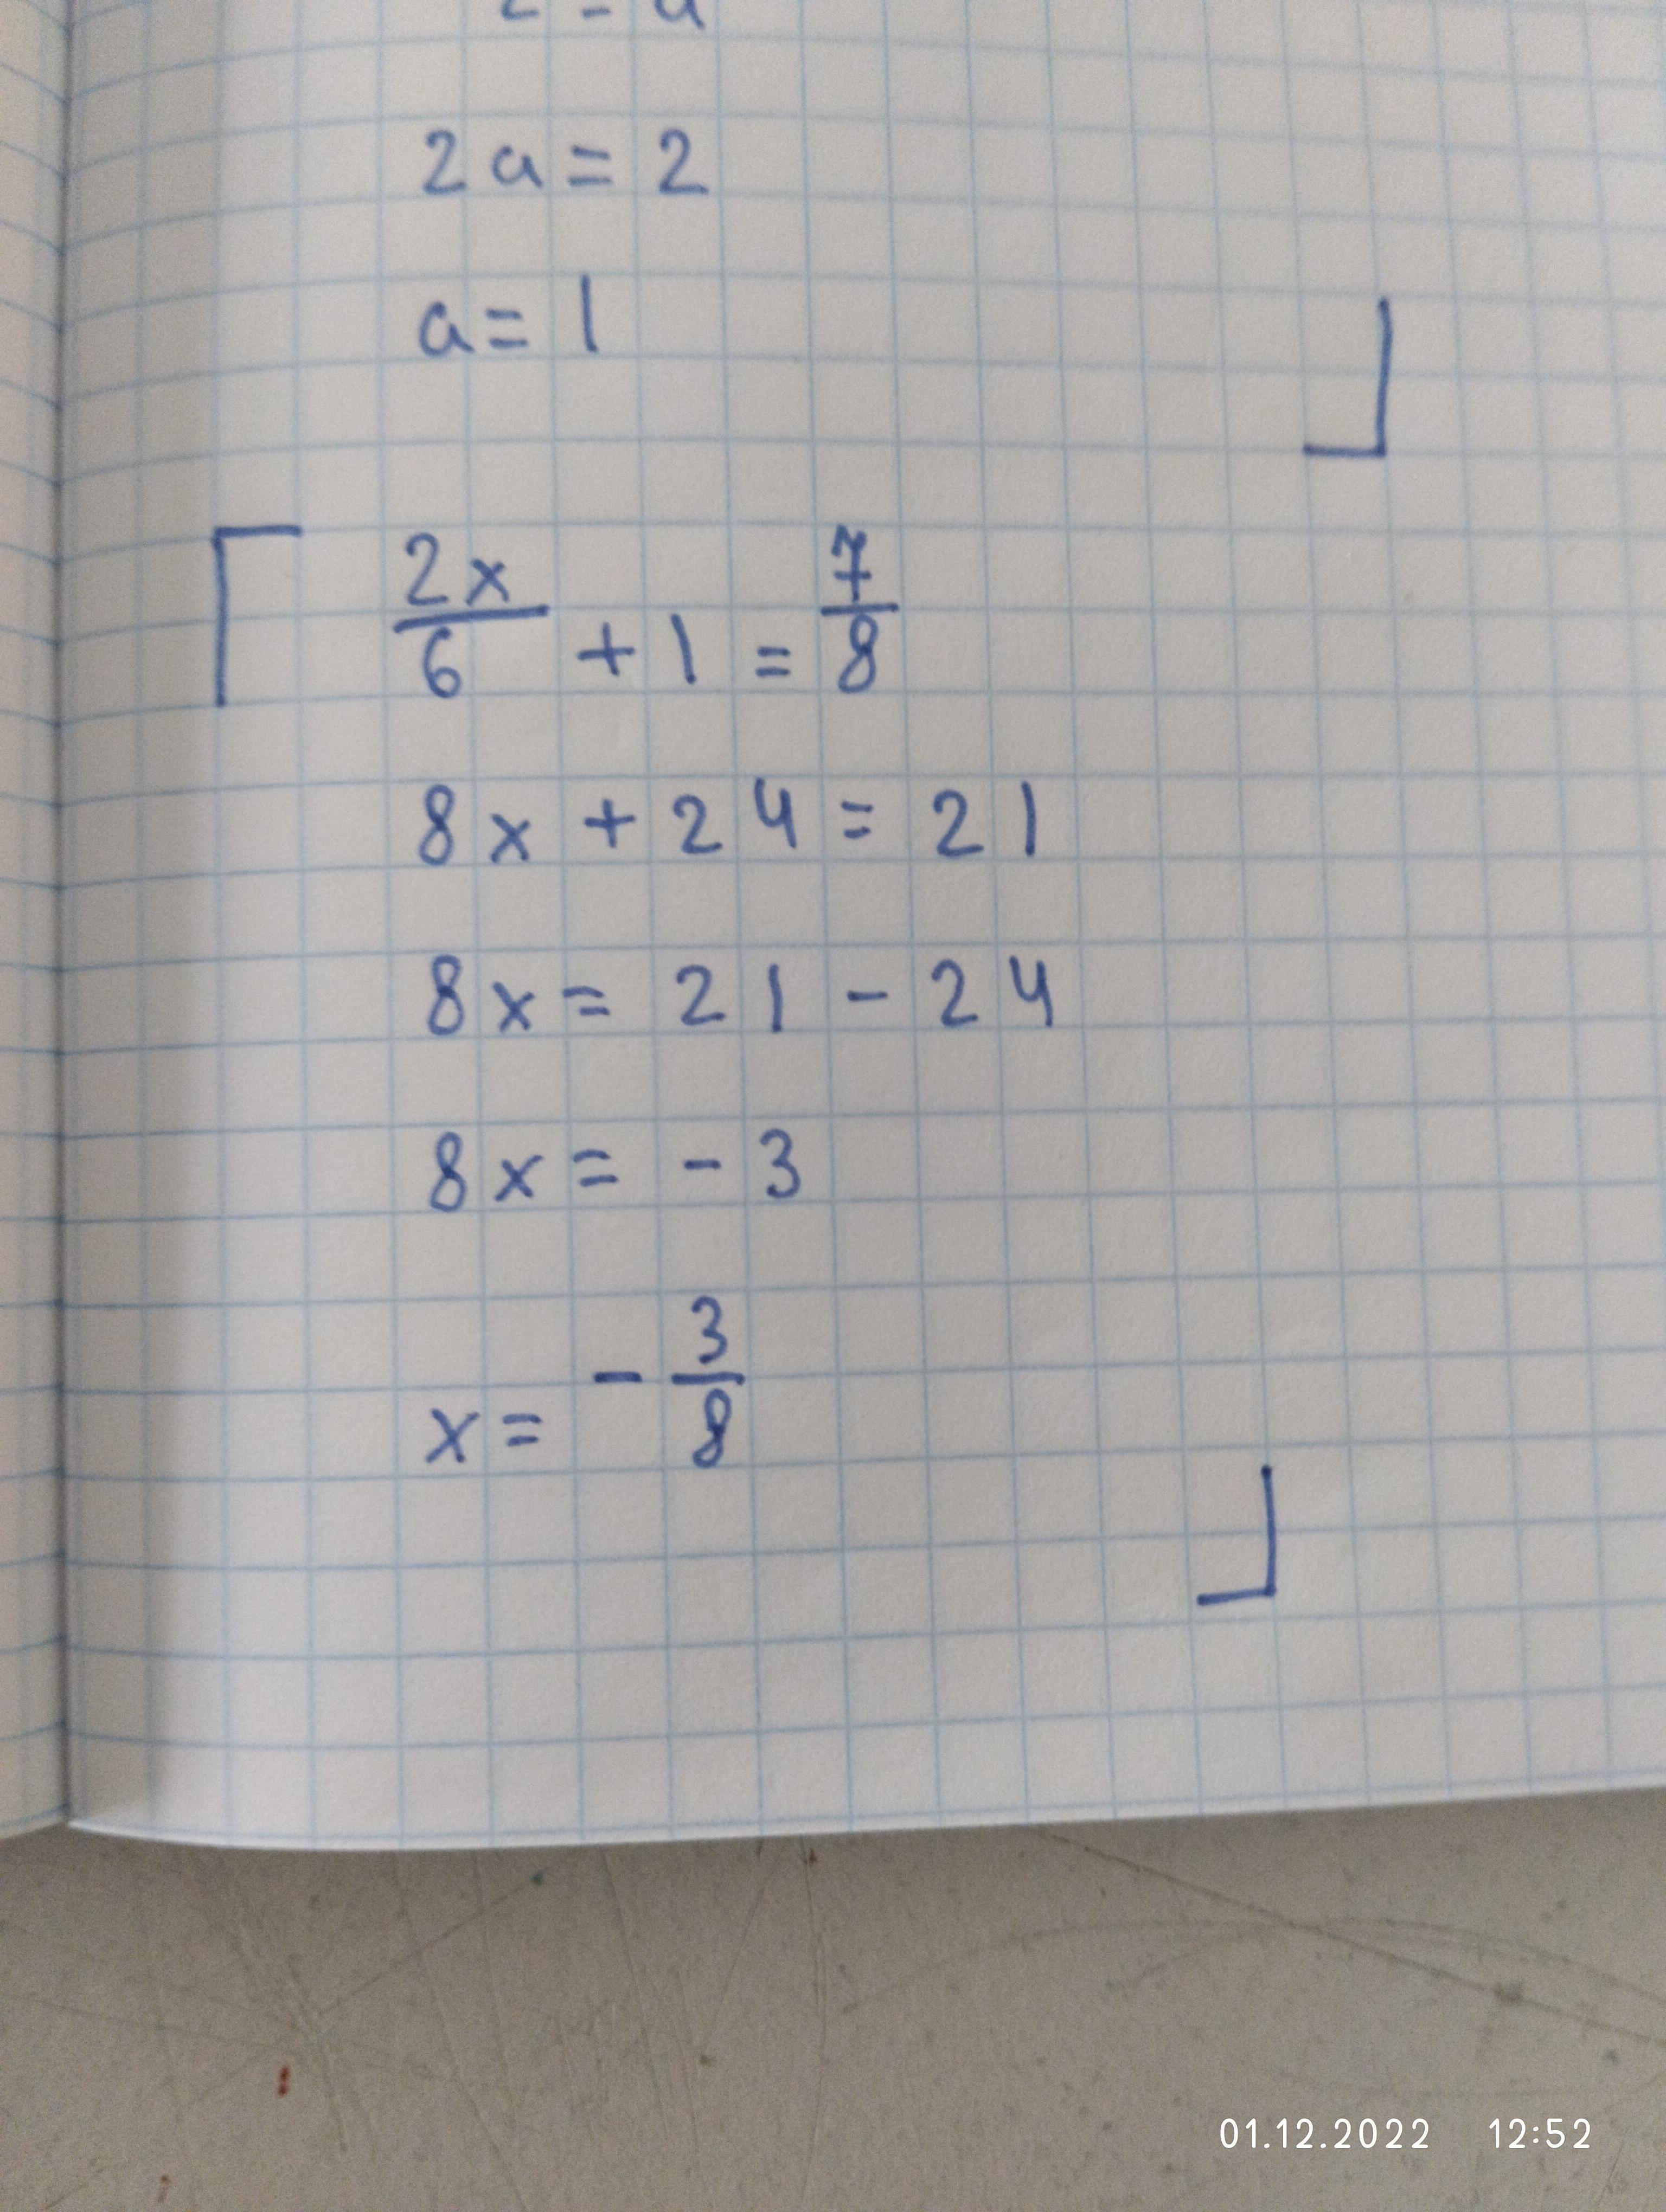 2a = 2
a = 1
2x/6 + 1 = 7/8
8x + 24 = 21
8x = 21 - 24
8x = - 3
x = - 3/8
01.12.2022 12:52